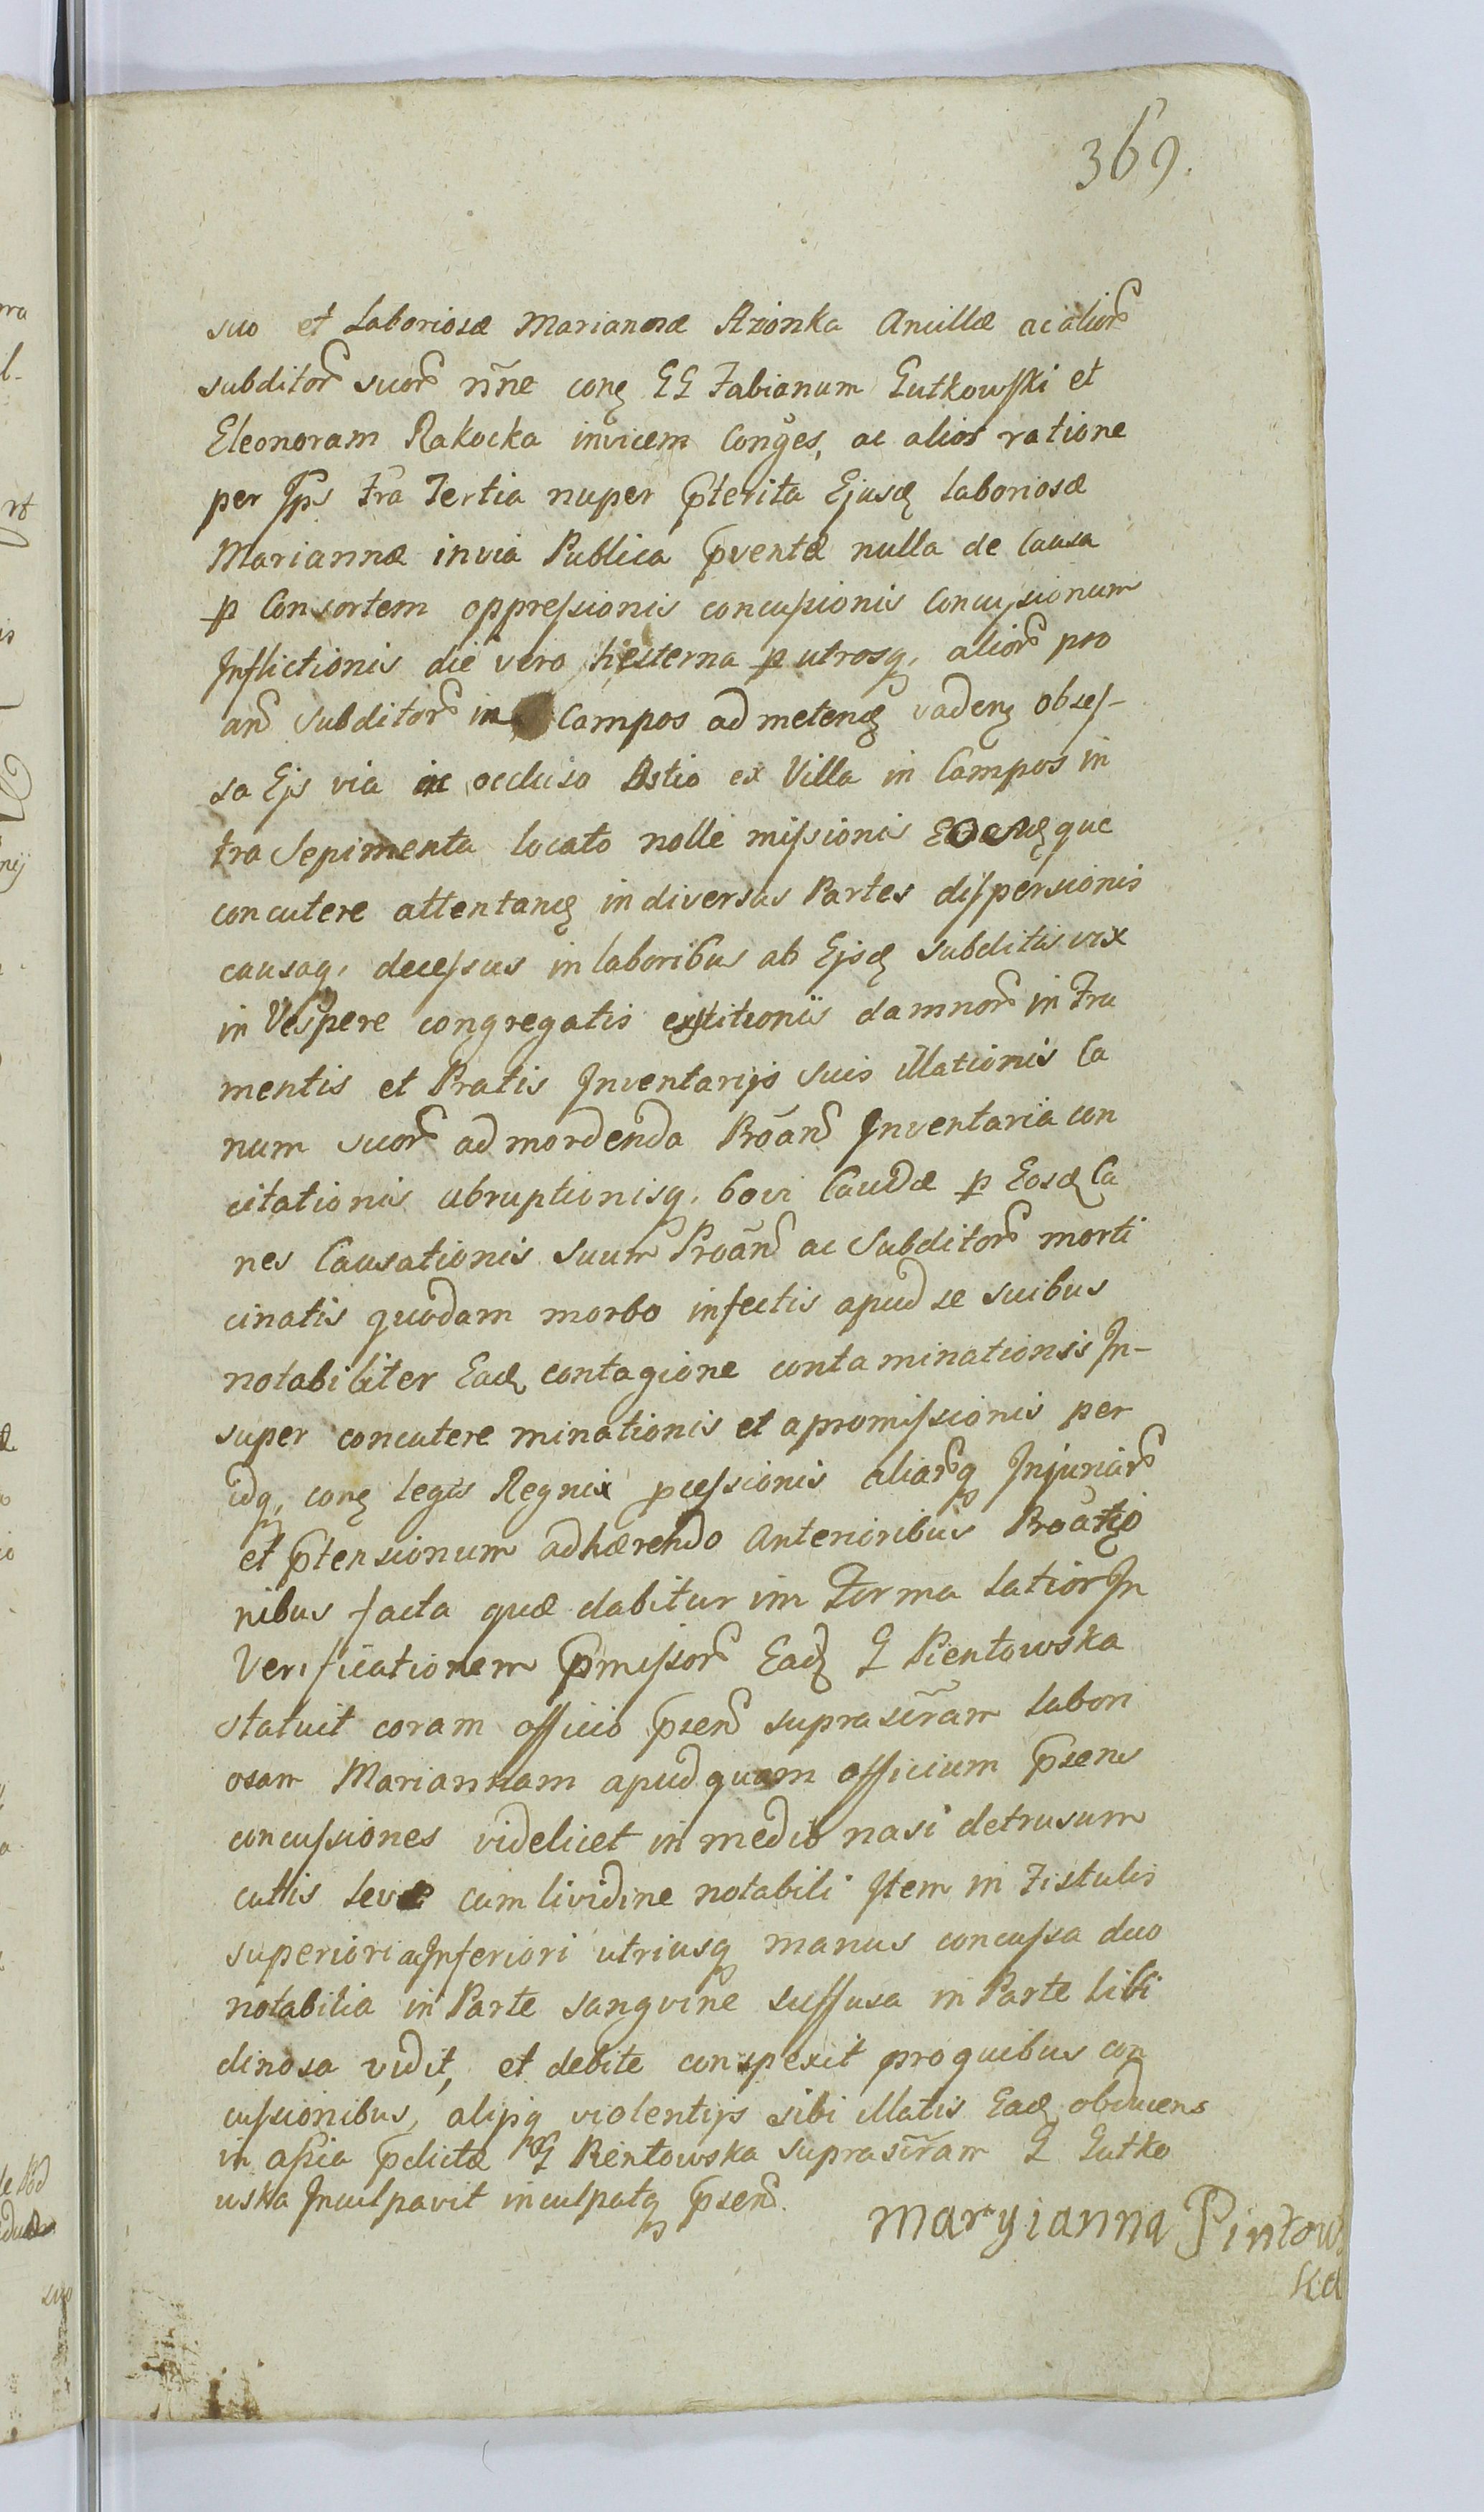 369.
suo et Laboriosæ Mariannæ Azionka Ancillæ ac alior̃
subditor̃ suor̃ nñe conꝫ GG Fabianum Gutkowski et
Eleonoram Rakocka invicem Conges, ac alios ratione
per Ips Fra Tertia nuper ꝑterita Ejusdꝫ Laboriosæ
Mariannæ in via Publica ꝑventæ nulla de Causa
ꝑ Consortem oppressionis concussionis Concussionum
Inflictionis die vero hesterna ꝑ utrosq, alior̃ pro
an̄ Subditor̃ in Campos ad metendꝫ vadenꝫ obses-
sa Ejs via occluso Ostio ex Villa in Campos in
tra Sepimenta locato nolle missionis que
concutere attentandꝫ in diversas Partes dispersionis
causaq, decessus in laboribus ab Ejsdꝫ subditis vix
in Vespere congregatis extitionis damnor̃ in Fru
mentis et Pratis Inventarijs suis illationis Ca
num suor̃ ad mordenda Proan̄ Inventaria con
citationis abruptionisq, bovi Caudæ ꝑ Eosdꝫ Ca
nes Causationis Suum Proan̄ ac Subditor̃ morti
cinatis quodam morbo infectis apud se suibus
notabiliter Eadꝫ contagione contaminationsis In-
super concutere minationis et apromissionis per
idq, conꝫ legis Regni ꝓcessionis aliar̃q Injuriar̃
et ꝑtensionum adhærendo Anterioribus Proãtio
nibus facta quæ dabitur in Forma latior In
Verificationem ꝑmissor̃ Eadꝫ G Pientowska
statuit coram officio ꝑsen̄ suprascr̃am Labori
osam Mariannam apud quam officium ꝑsens
concussiones videlicet in medio nasi detrusum
cuttis leve cum lividine notabili Item in Fistulis
superiori ac Inferiori utriusq manus concussa duo
notabilia in Parte sangvine suffusa in Parte libi
dinosa vidit, et debite conspexit pro quibus con
cussionibus, alijsq violentijs sibi illatis Eadꝫ obducens
in assia ꝑdictæ G Pientowska suprascr̃am G Gutko
wska Inculpavit inculpatq ꝑsen̄.
Maryianna Pintows
ka